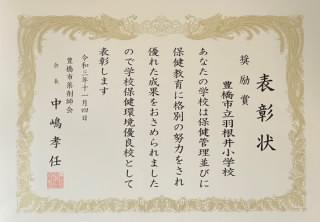 表彰状
奨励賞
豊橋市立羽根井小学校
あなたの学校は保健管理並びに
保健教育に格別の努力をされ
優れた成果をおさめられました
ので学校保健環境優良校として
表彰します
令和三年十一月四日
豊橋市薬剤師会
会長 中嶋孝任